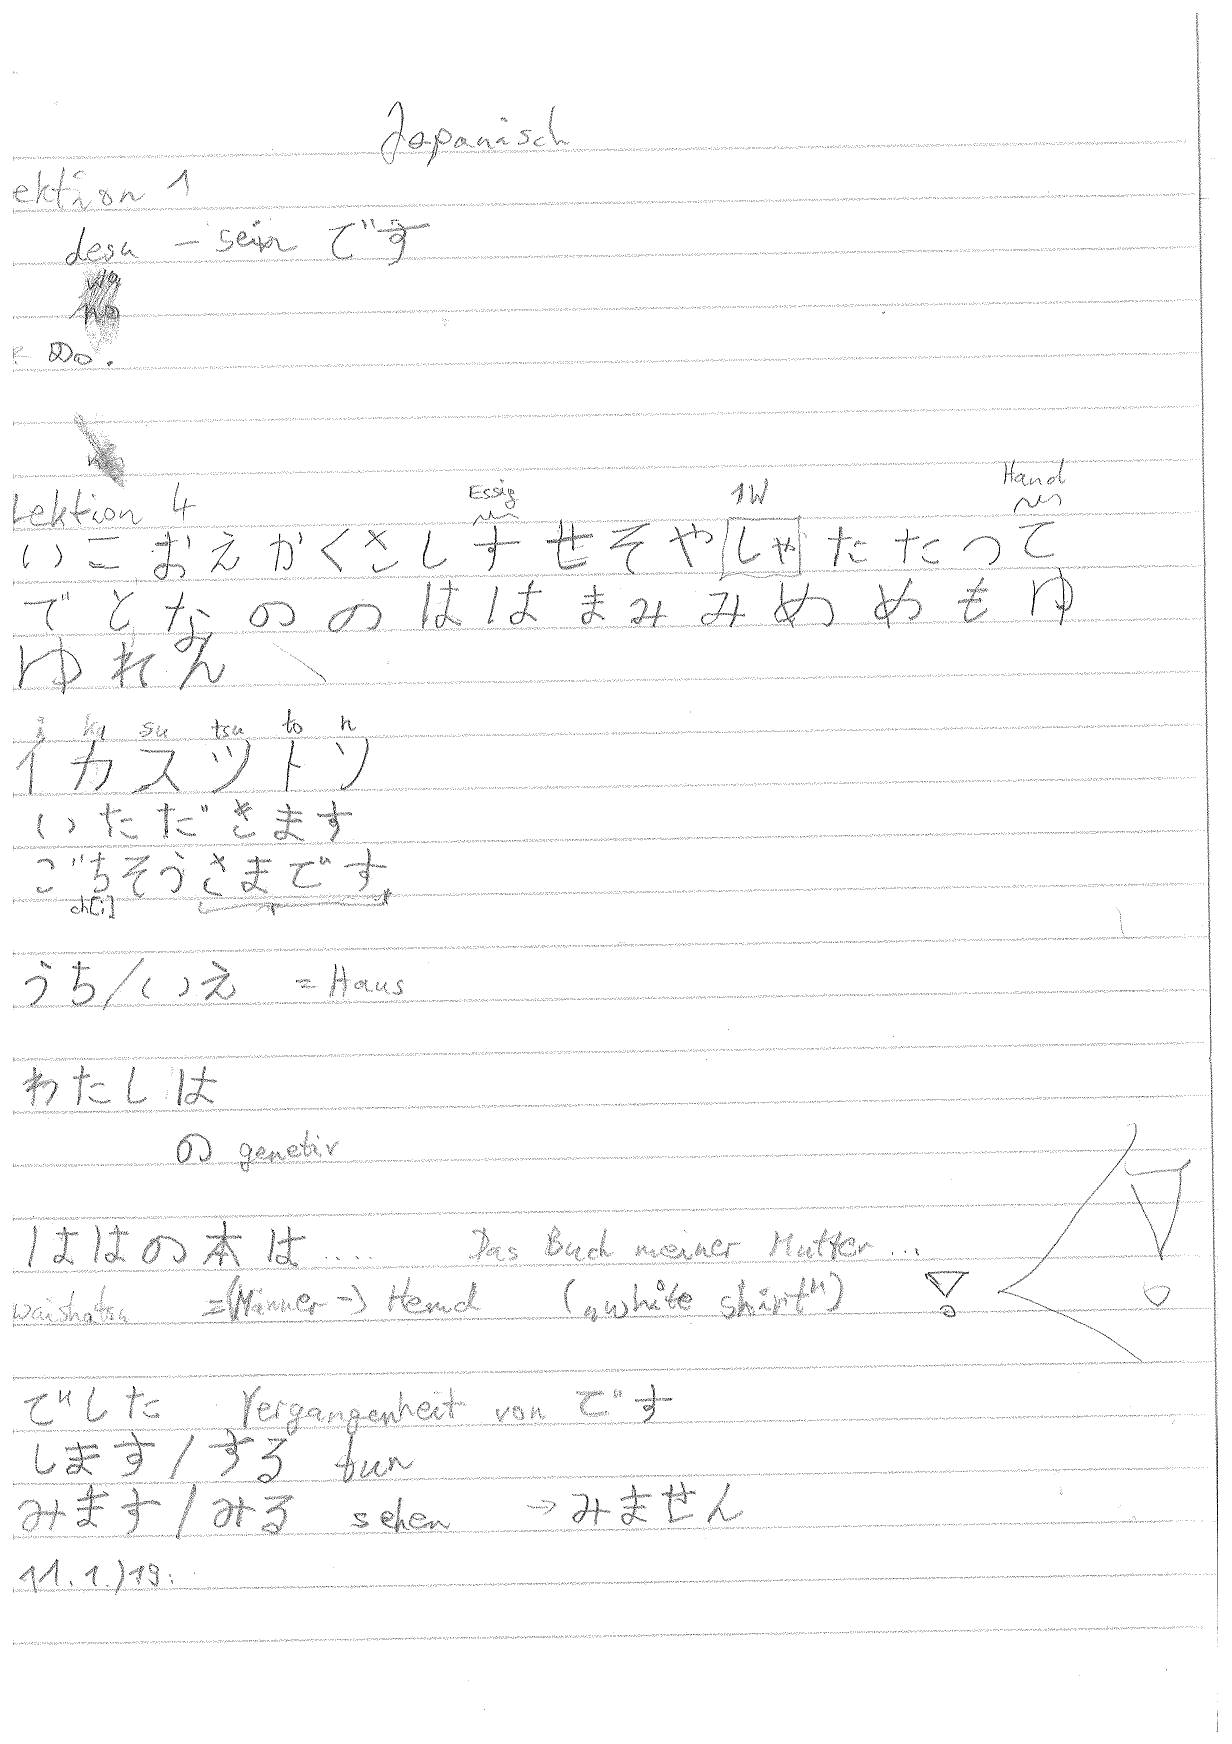 Japanisch
ektion 1
desu - sein です
no
の.
Lektion 4
Essig 1W Hand
いこおえかくさしすせそやしゃたたつて
でとなののははまみみめめもゆ
な
ゆれん
i ka su tsu to n
イカスツトソ
いただきます
ごちそうさまです
ch[i]
うち/いえ = Haus
わたしは
の genetiv
ははの本は..... Das Buch meiner Mutter...
waishatsu =(Männer-) Hemd („white shirt")
でした Vergangenheit von です
します/する tun
みます/みる sehen → みません
11.1.)19: